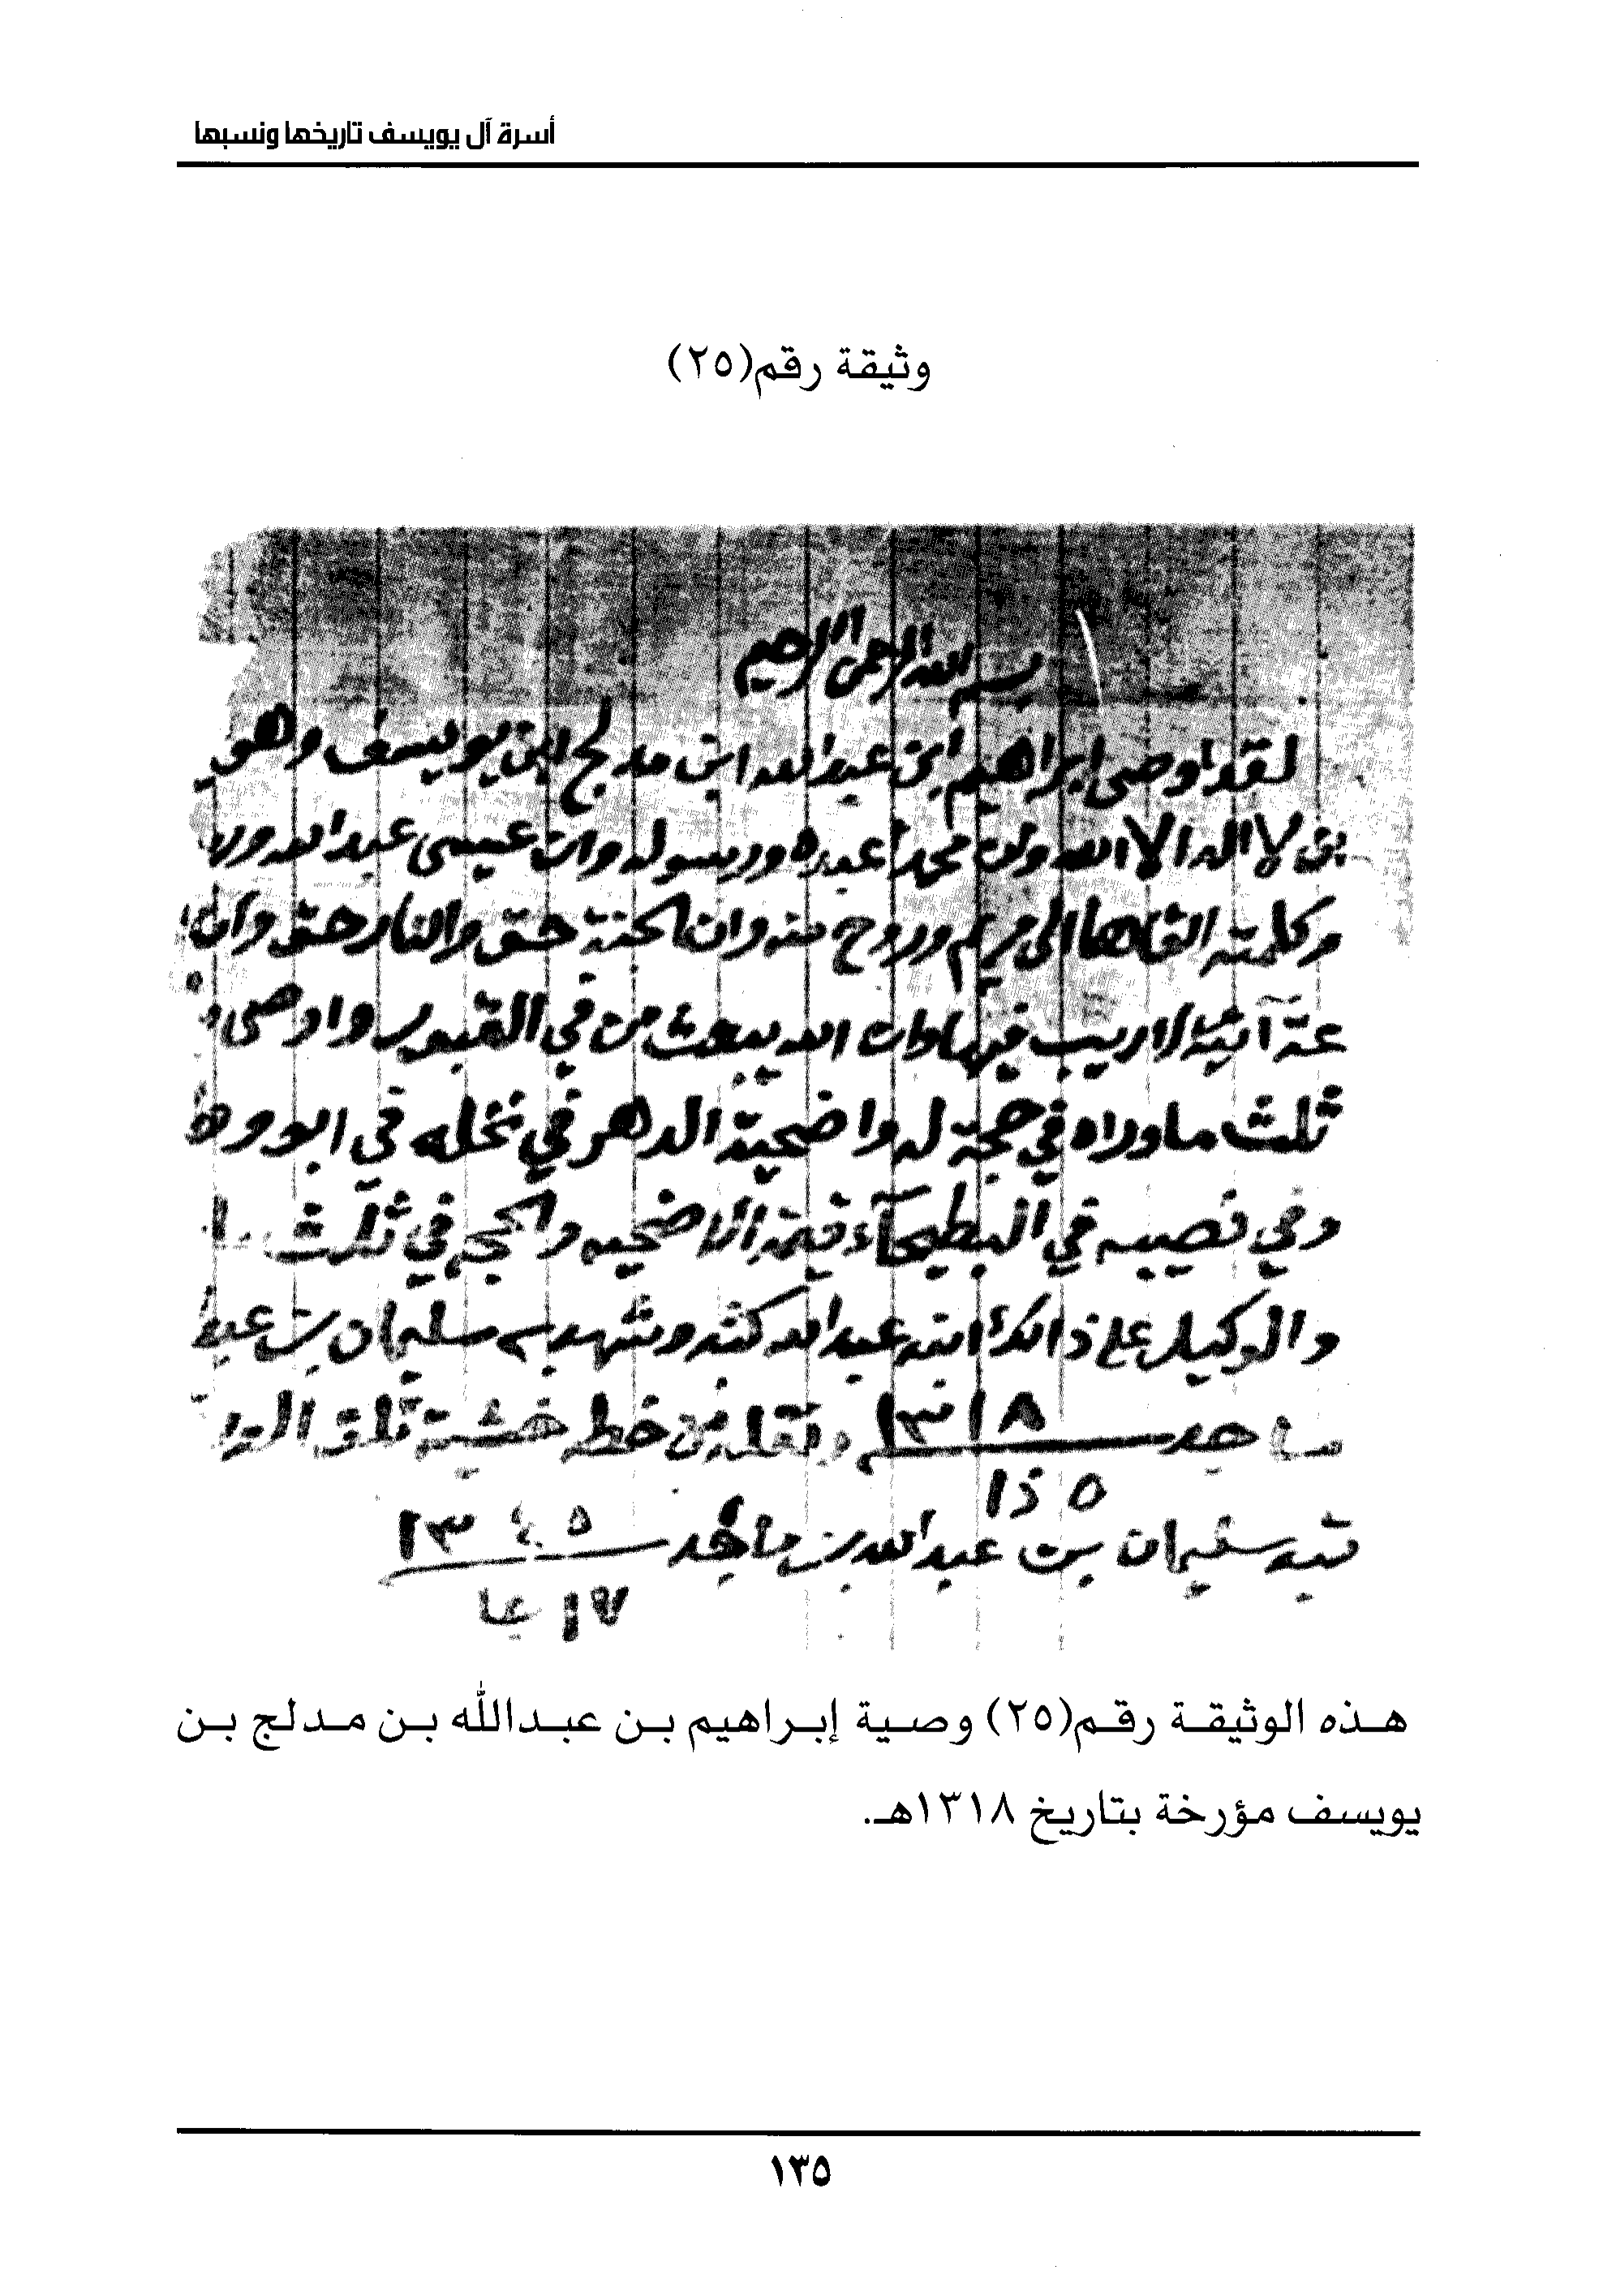 أسرة آل يويسف تاريخها ونسبها
وثيقة رقم(٢٥)
بسم الله الرحمن الرحيم
لقد اوصى ابراهيم ابن عبدالله ابن مدلج ابن يويسف وهو
بان لا اله الا الله وان محمدا عبده ورسوله وان عيسى عبدالله ور
وكلمته القاها الى مريم وروح منه وان الجنة حق والنار حق وان
عة آتية لا ريب فيها وان الله يبعث من في القبور واوصى
ثلث ماوراه في حجة له واضحية الدهر في نخله في ابو
وفي نصيبه في البطيحآء قيمة الاضحيه والحجه في ثلث
والوكيل على ذالك ابنه عبدالله كتبه وشهد به سليمان بن عبد
ماجد ١٣١٨ ونقله من خطه خشية تلاف
٥ ذا
تبه سليمان بن عبدالله بن ماجد ١٣٤٥
١٧ عا
هذه الوثيقة رقم(٢٥) وصية إبراهيم بن عبدالله بن مدلج بن
يويسف مؤرخة بتاريخ ١٣١٨هـ.
١٣٥